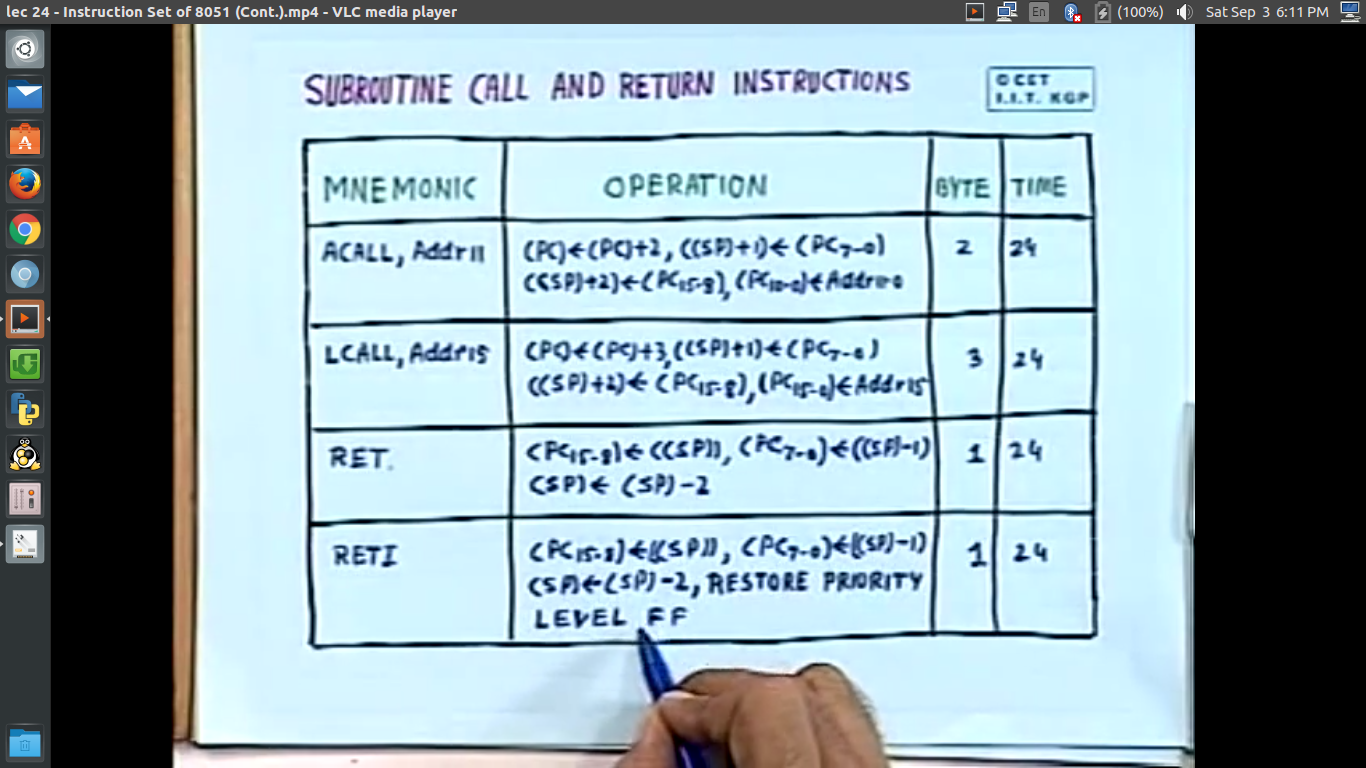 lec 24 - Instruction Set of 8051 (Cont.).mp4 - VLC media player
En
(100%)
Sat Sep 3 6:11 PM
SUBROUTINE CALL AND RETURN INSTRUCTIONS
© CET
I.I.T. KGP
MNEMONIC OPERATION BYTE TIME
ACALL, Addr11 (PC)←(PC)+2, ((SP)+1)←(PC7-0) 2 24
((SP)+2)←(PC15-8), (PC10-0)←Addr10-0
LCALL, Addr15 (PC)←(PC)+3, ((SP)+1)←(PC7-0) 3 24
((SP)+2)←(PC15-8), (PC15-0)←Addr15
RET. (PC15-8)←((SP)), (PC7-0)←((SP)-1) 1 24
(SP)←(SP)-2
RETI (PC15-8)←((SP)), (PC7-0)←((SP)-1) 1 24
(SP)←(SP)-2, RESTORE PRIORITY
LEVEL FF